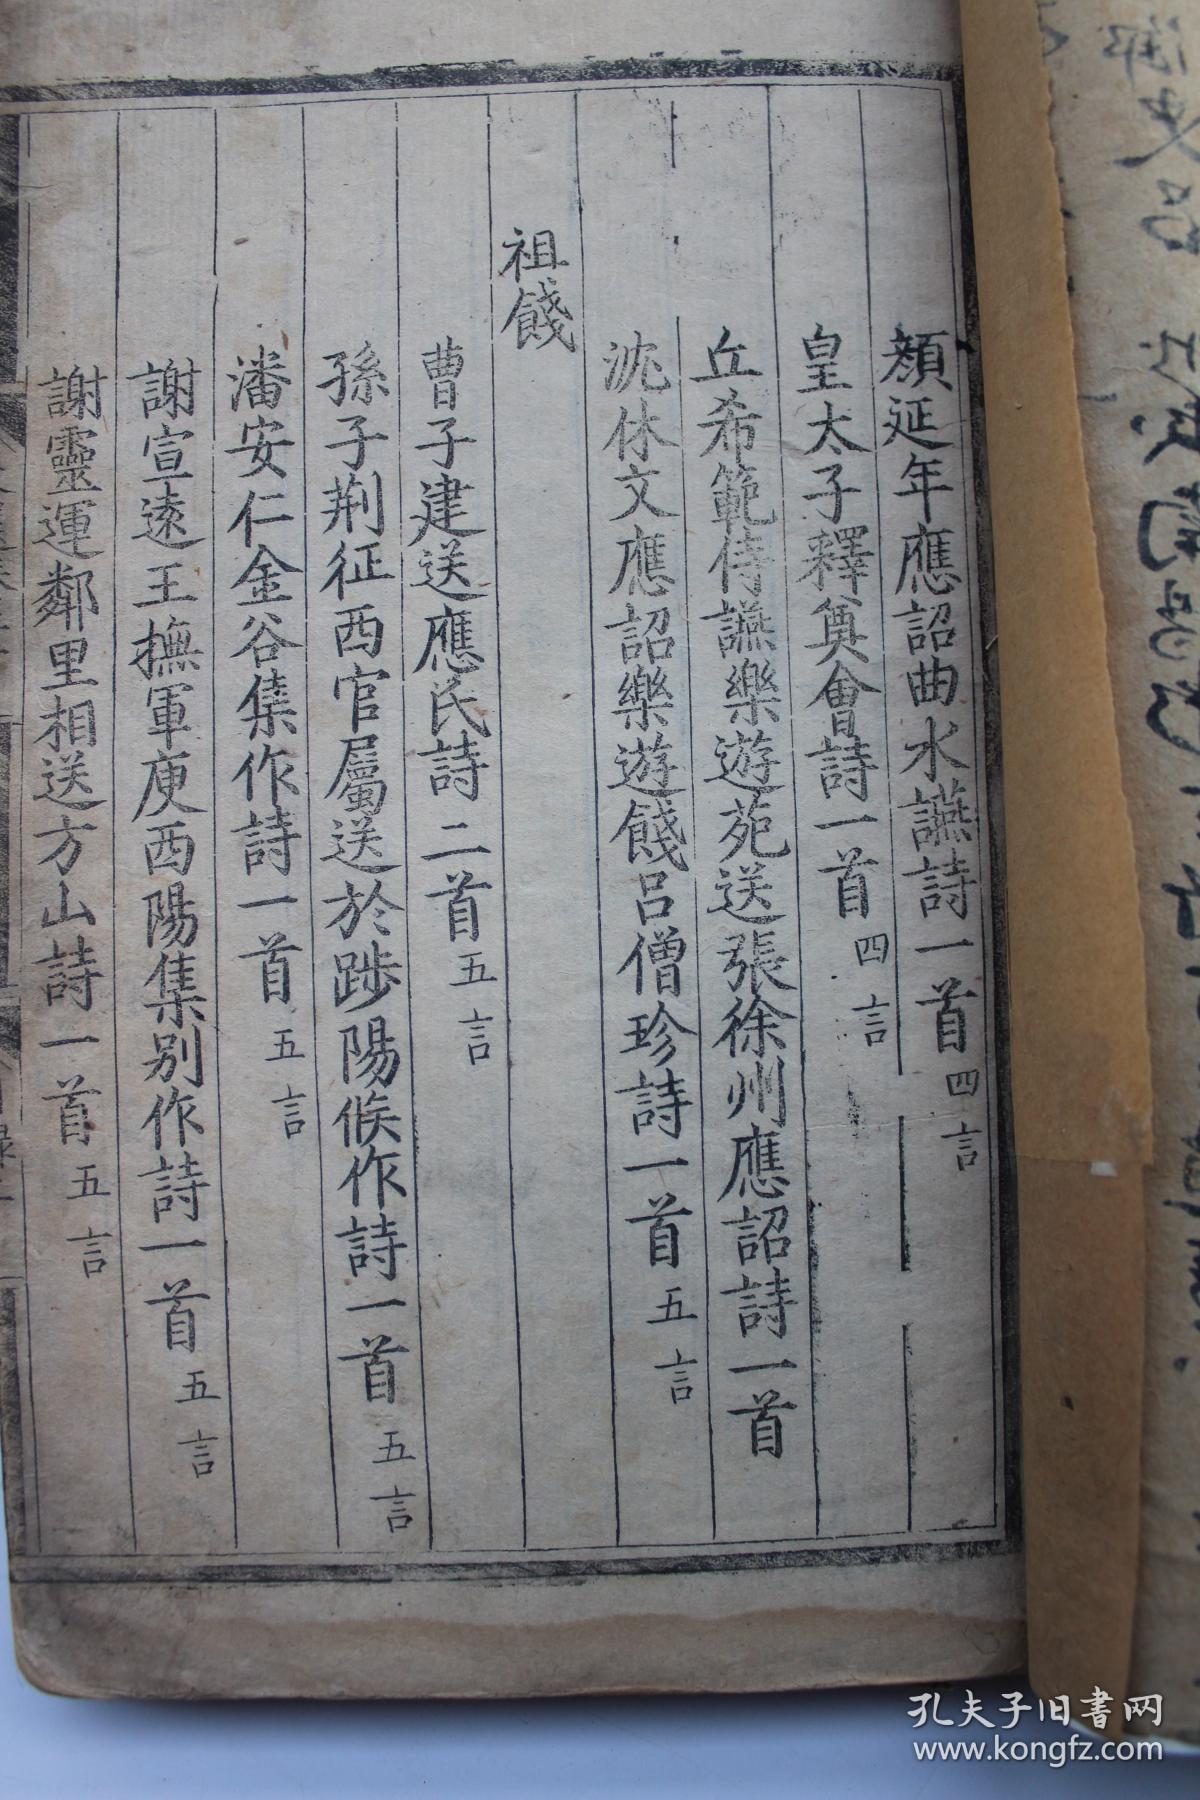 顏延年應詔曲水讌詩一首四言
皇太子釋奠會詩一首四言
丘希範侍讌樂遊苑送張徐州應詔詩一首
沈休文應詔樂遊餞呂僧珍詩一首五言
祖餞
曹子建送應氏詩二首五言
孫子荆征西官屬送於陟陽候作詩一首五言
潘安仁金谷集作詩一首五言
謝宣遠王撫軍庾西陽集別作詩一首五言
謝靈運鄰里相送方山詩一首五言
孔夫子旧书网
www.kongfz.com